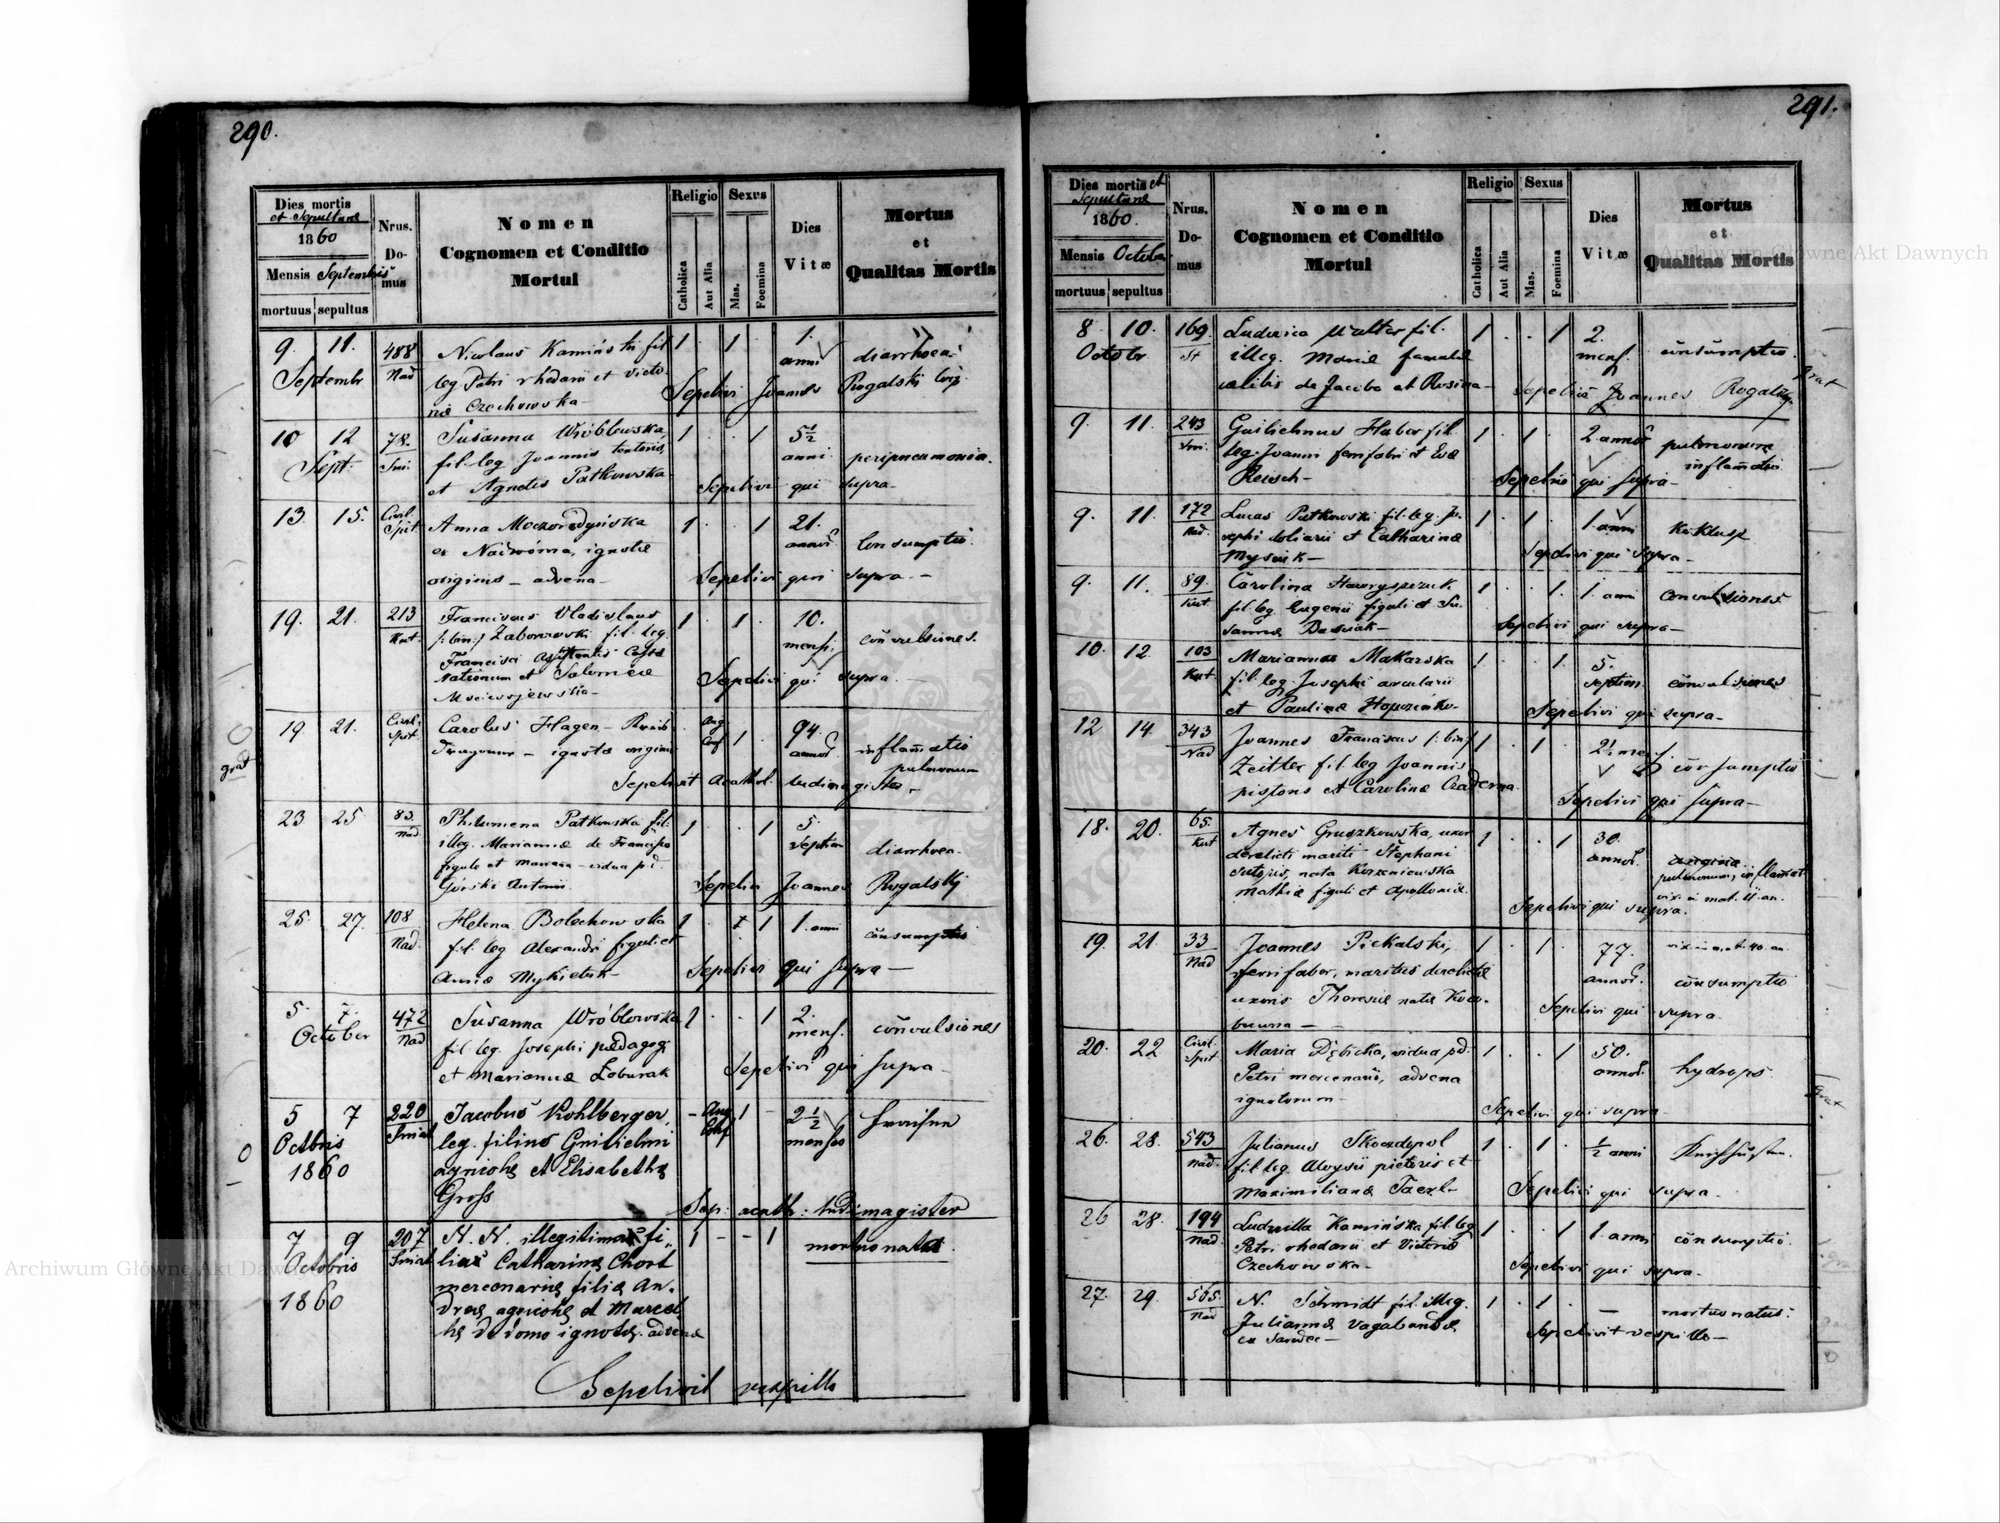 290.
Dies mortis
et Sepulturae
1860
Mensis Septembris
mortuus sepultus
Nrus. Domus
Nomen
Cognomen et Conditio
Mortui
Religio
Catholica
Aut Alia
Sexus
Mas.
Foemina
Dies
Vitæ
Mortus
et
Qualitas Mortis
9. 11. 488 Nicolaus Kamiński fil 1 . 1 . 1.
Septembr Nad leg Petri rhedarii et Victo- anni diarrhoea
næ Czechowska - Sepelivi Joannes Rogalski
10 12 78. Susanna Wróblewska 1 . . 1 5½
Sept. Smi. fil. leg Joannis anni peripneumonia.
et Agnetis Patkowska Sepelivi qui supra -
13. 15. Civil. Anna 1 . . 1 21.
Spit. ex Nadwórna, ignotæ annor Consumptio
originis - advena - Sepelivi qui supra. -
19. 21. 213 Franciscus Vladislaus 1 . 1 . 10.
Kut. /: bin:/ Zaborowski fil. leg. mens. convulsiones.
Francisci
et Salomeæ Sepelivi qui supra. -
19. 21. Civil. Carolus Hagen - Aug 1 94.
Spit. - ignotæ originis Conf annor inflamatio
pulmonum
Sepelivit Acathol. ludimagister.
23 25 83. Philumena Patkowska fil. 1 . . 1 5.
Nad. illeg. Mariannæ de Francisco septim diarrhoea.
figulo et Marianna - vidua p. d.
Górski Antonii. Sepelivi Joannes Rogalskij
25 27. 108 Helena Bolechowska 1 . . 1 1. anni
Nad. fil. leg Alexandri figuli et consumptio
Annæ Mykietuk - Sepelivi qui supra -
5. 7. 472 Susanna Wróblowska 1 . . 1 2.
October Nad fil. leg. Josephi pædagogi mens. convulsiones
et Mariannæ Łoburak Sepelivi qui supra -
5 7 220 Jacobus Kohlberger, - Aug 1 - 2½
Octbris Smiat leg. filius Guilielmi Conf menses
1860 agricolę et Elisabethę
Gross Sep: acath: ludimagister
7 9 207 N. N. illegitima fi- 1 - - 1 mortuo nata.
Octobris Smiat lia Catharinę Chort
1860 mercenarię filiæ An-
dreę agricolę et
de domo ignotę. advena
Sepelivit vespillo
291.
Dies mortis et
Sepulturae
1860.
Mensis Octobr
mortuus sepultus
Nrus. Domus
Nomen
Cognomen et Conditio
Mortui
Religio
Catholica
Aut Alia
Sexus
Mas.
Foemina
Dies
Vitæ
Mortus
et
Qualitas Mortis
8 10. 169. Ludovica Walter fil. 1 . . 1 2.
Octobr St illeg. Mariæ famulæ mens. consumptio.
cælibis de Jacobo et Rosina - Sepelivi Joannes Rogalskij
grat
9. 11. 243 Guilielmus Haber fil. 1 . 1 . 2 annor pulmonum
Smi. leg. Joanni ferrifabri et Evæ inflamatio
Reisch - Sepelivi qui supra -
9. 11. 172 Lucas Patkowski fil. leg. Jo- 1 . 1 . 1. anni koklusz
Nad. sephi doliarii et Catharinæ
Myszuk - Sepelivi qui supra -
9. 11. 89. Carolina Hawryszczuk 1 . . 1. 1. anni convulsiones
Kut. fil. leg. Eugenii figuli et Su-
sannæ - Sepelivi qui supra -
10. 12. 103 Marianna Makarska 1 . . 1. 5.
Kut fil. leg. Josephi arcularii septim. convulsiones
et Paulinæ Sepelivi qui supra -
12 14. 343 Joannes Franciscus /: bin:/ 1 . 1 . 2½ mens.
Nad Zeitler fil. leg Joannis consumptio
pistoris et Carolinæ Sepelivi qui supra -
18. 20. 65. Agnes Gruszkowska, uxor 1 . . 1 30.
Kut derelicti mariti Stephani annor. angina
sutoris, nata Korzeniewska pulmonum, inflamat
Mathiæ figuli et Apolloniæ. vixi in mat. 11. an.
Sepelivi qui supra.
19. 21. 33 Joannes Piekalski, 1 . 1 . 77. vix in mat. 40. an.
Nad ferrifaber, maritus derelictæ annor. consumptio
uxoris Theresiæ natæ Sepelivi qui supra.
20. 22 Civil. Maria Dębicka, vidua p.d. 1 . . 1 50.
Spit Petri mercenarii, advena annor. hydrops.
ignotorum - Sepelivi qui supra - grat
26. 28. 543 Julianus Skoczdypol 1 . 1 . ½ anni
Nad. fil. leg. Aloysii et
Maximilianæ Sepelivi qui supra.
26 28. 194 Ludmilla Kamińska fil. leg 1 . . 1 1. anni consumptio.
Nad. Petri rhedarii et Victoriæ
Czechowska - Sepelivi qui supra.
27. 29. 565. N. Schmidt fil. illeg. 1 . 1 . - mortuo natus.
Nad Juliannæ vagabundæ
Sepelivit vespillo -
grat
Archiwum Główne Akt Dawnych
Archiwum Główne Akt Dawnych